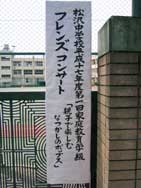 松沢中学校平成十七年度第一回家庭教育学級
フレンズコンサート
「親子で楽しむ
なつかしのポップス」